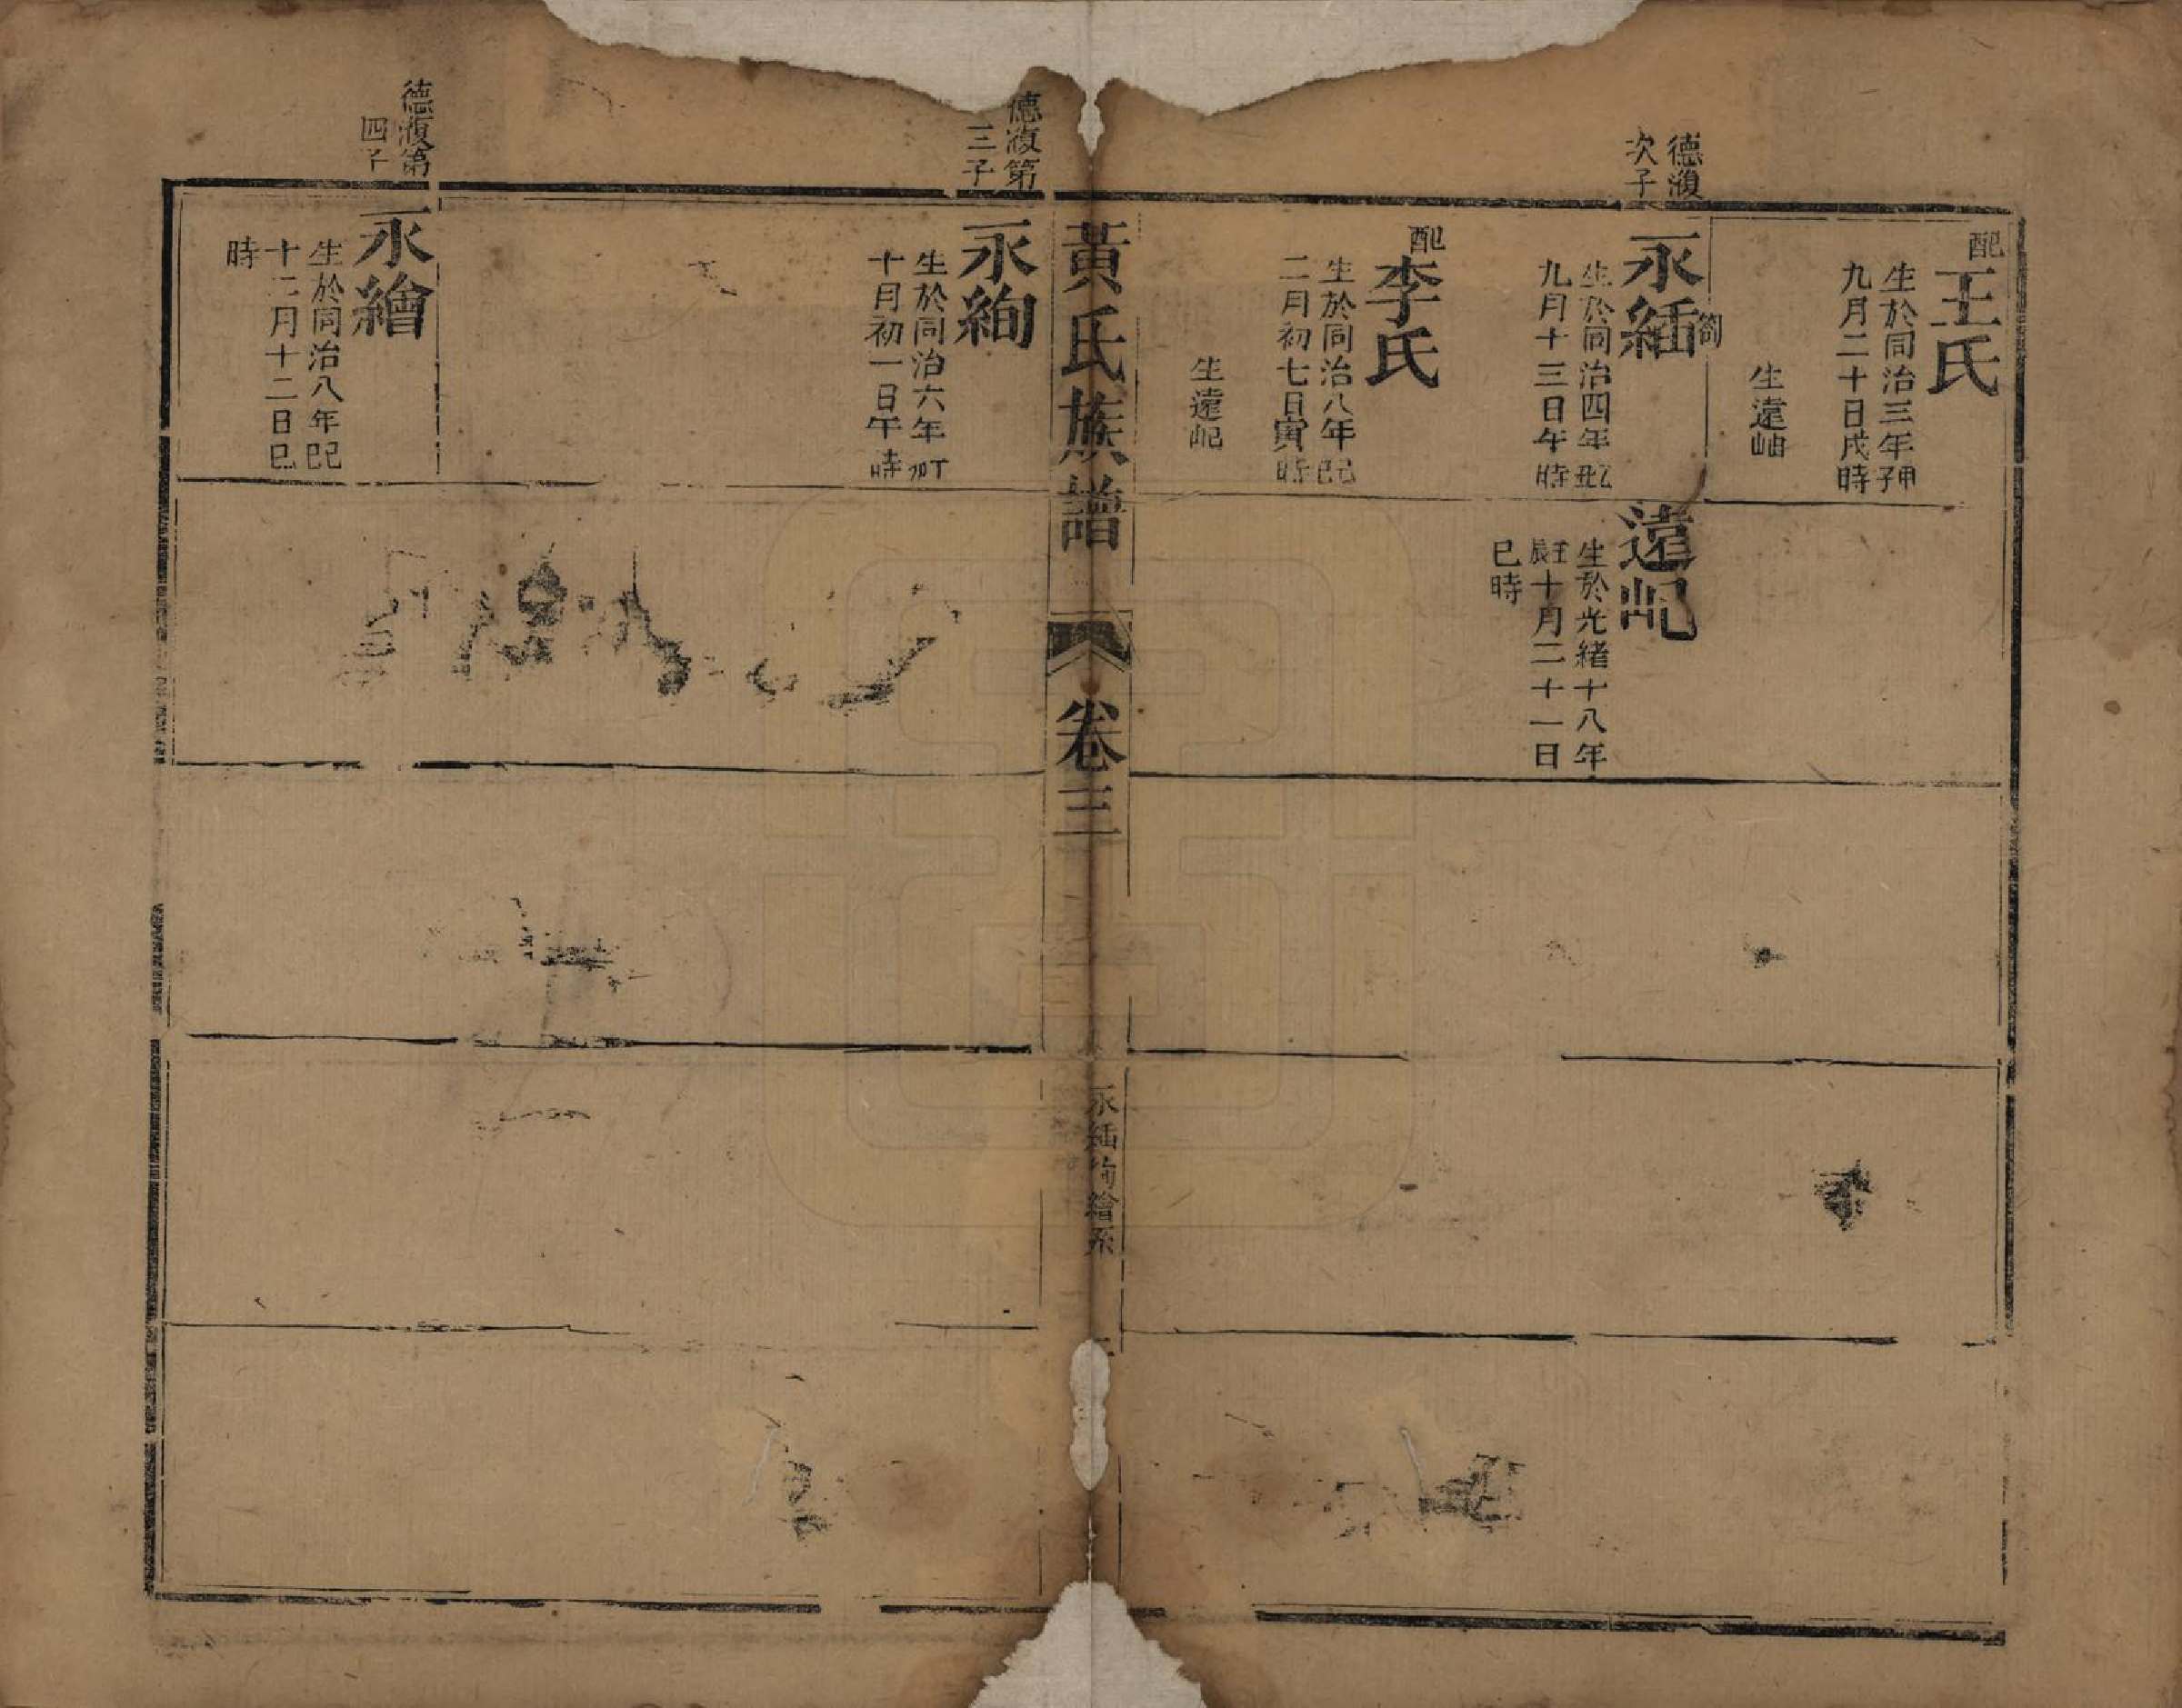 配
王氏
生於同治三年甲子
九月二十日戌時
生遠岫
德澓
次子
永緬
生於同治四年乙丑
九月十三日午時
配
李氏
生於同治八年己巳
二月初七日寅時
生遠屺
遠屺
生於光緒十八年
壬辰十月二十一日
巳時
黃氏族譜
卷三
永緬絢繪系
德澓第
三子
永絢
生於同治六年丁卯
十月初一日午時
德澓第
四子
永繪
生於同治八年己巳
十二月十二日巳
時